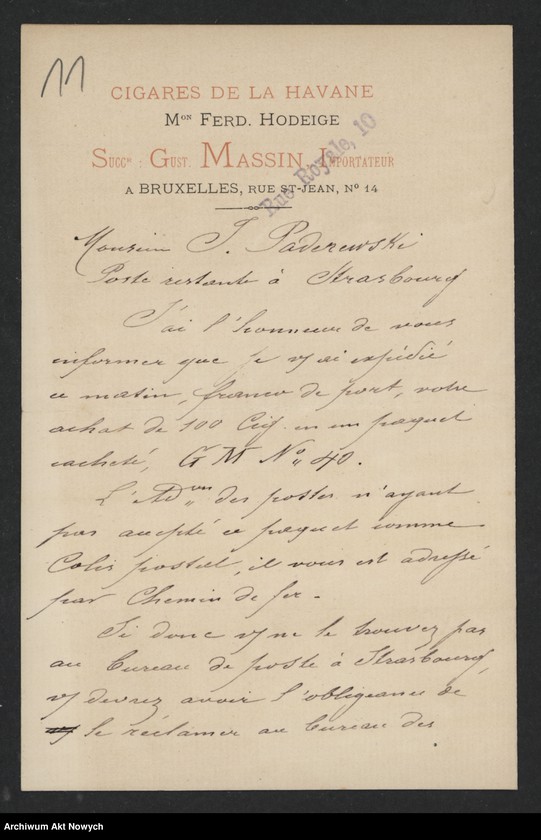 11
CIGARES DE LA HAVANE
Mon FERD. HODEIGE
Succr : GUST. MASSIN, IMPORTATEUR
Rue Royale, 10
A BRUXELLES, RUE ST-JEAN, No 14
Monsieur J. Paderewski
Poste restante à Strasbourg
J'ai l'honneur de vous
informer que je v/ ai expédié
ce matin, franco de port, votre
achat de 100 Cig. en un paquet
cacheté, G M No 40.
L'Adon des postes n'ayant
pas accepté ce paquet comme
Colis postal, il vous est adressé
par Chemin de fer.
Si donc v/ ne le trouvez pas
au bureau de poste à Strasbourg,
v/ devrez avoir l'obligeance de
le réclamer au bureau des
Archiwum Akt Nowych